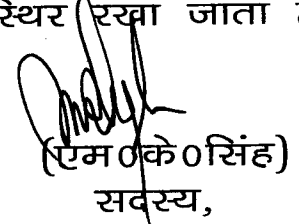 स्थिर रखा जाता
(एम0के0सिंह)
सदस्य,